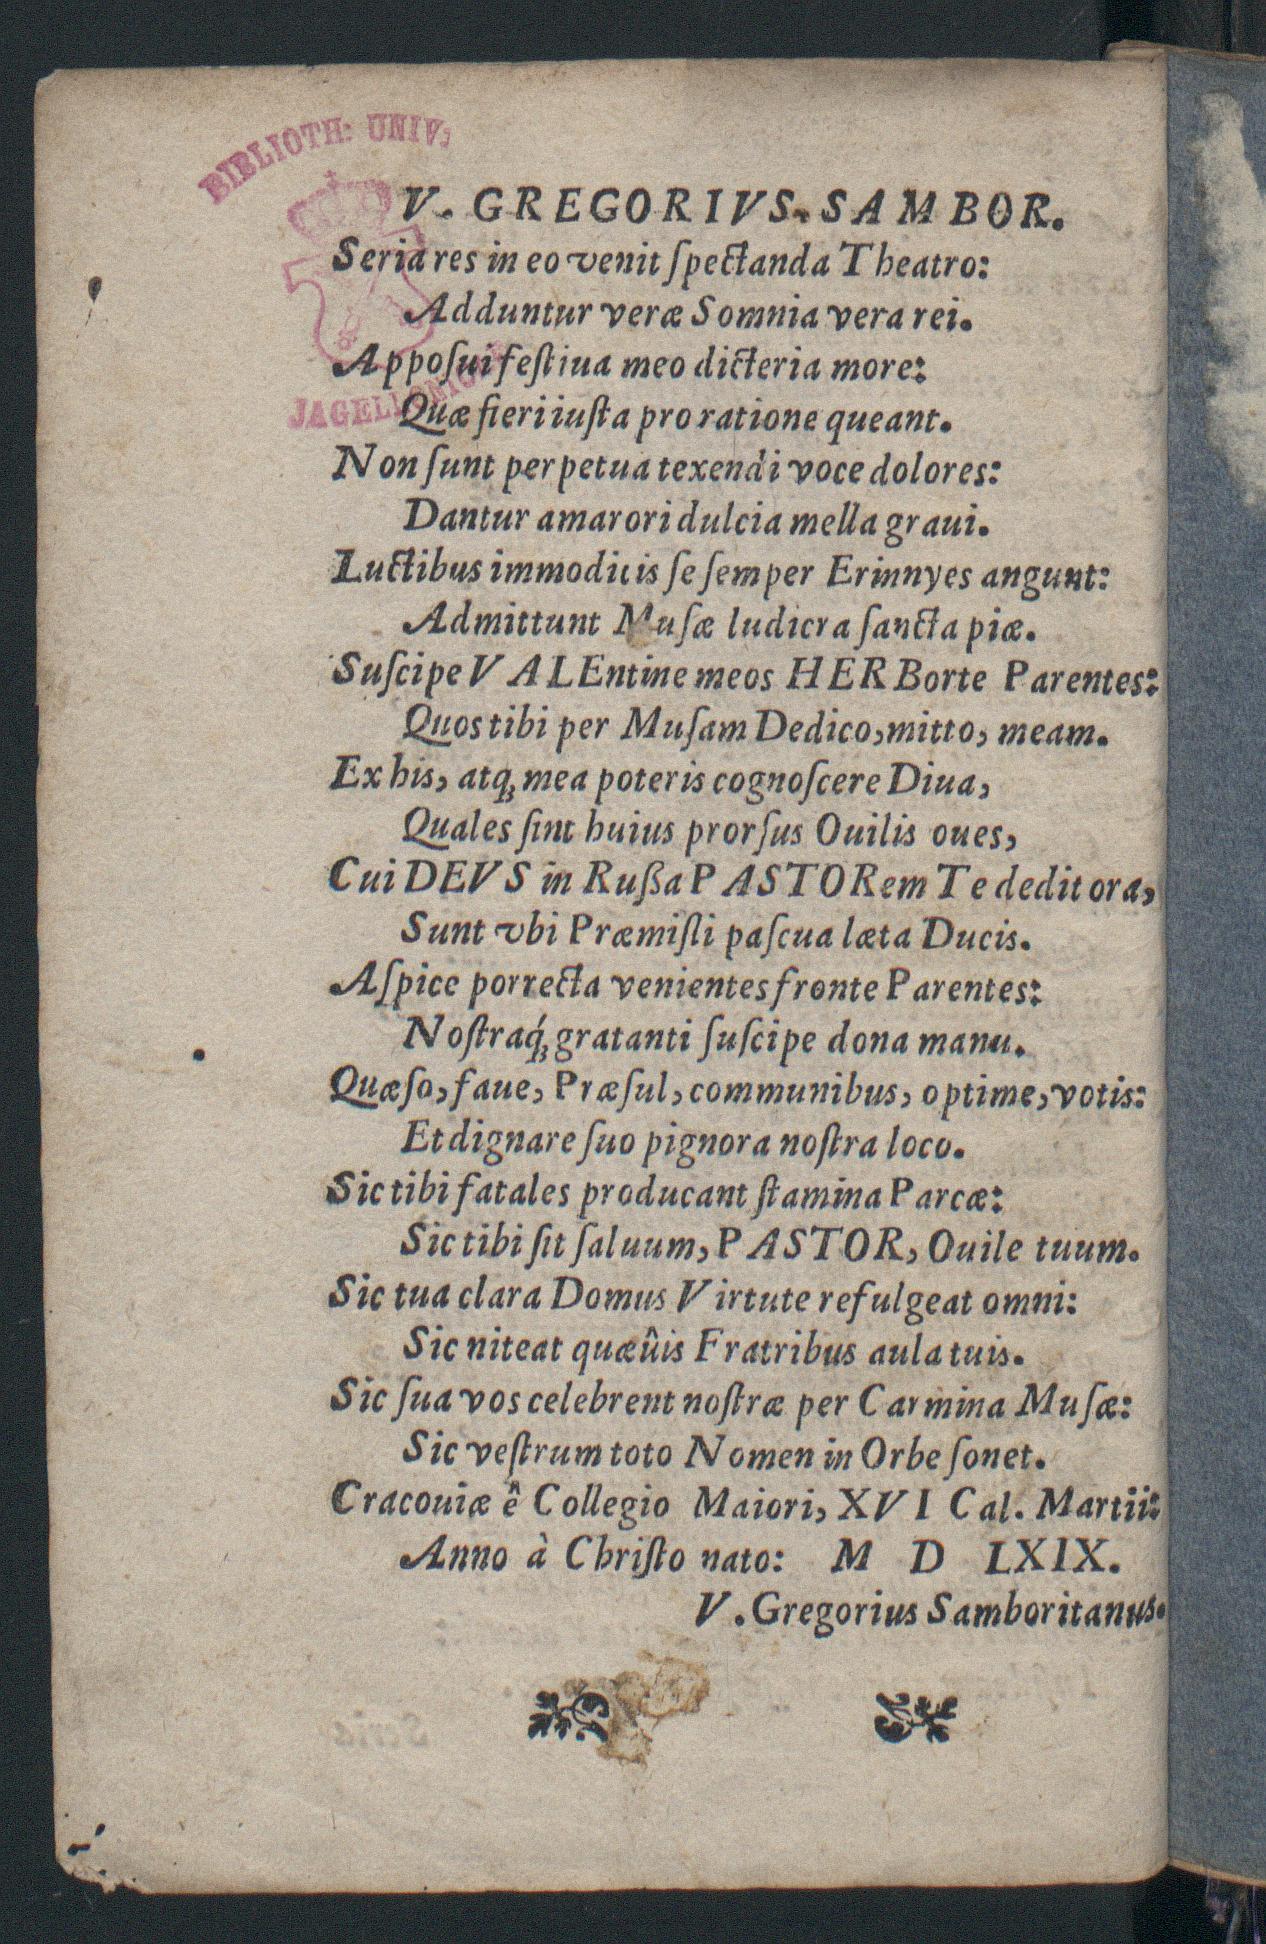 BIBLIOTH: UNIV:
JAGELLONICA
V. GREGORIVS. SAMBOR.
Seria res in eo venit ſpectanda Theatro:
Adduntur veræ Somnia vera rei.
Appoſui feſtiua meo dicteria more:
Quæ fieri iuſta pro ratione queant.
Non ſunt perpetua texendi voce dolores:
Dantur amarori dulcia mella graui.
Luctibus immodicis ſe ſemper Erinnyes angunt:
Admittunt Muſæ ludicra ſancta piæ.
Suſcipe VALEntine meos HERBorte Parentes:
Quos tibi per Muſam Dedico, mitto, meam.
Ex his, atq; mea poteris cognoſcere Diua,
Quales ſint huius prorſus Ouilis oues,
Cui DEVS in Rußa PASTORem Te dedit ora,
Sunt vbi Præmiſli paſcua læta Ducis.
Aſpice porrecta venientes fronte Parentes:
Noſtraq́; gratanti ſuſcipe dona manu.
Quæſo, faue, Præſul, communibus, optime, votis:
Et dignare ſuo pignora noſtra loco.
Sic tibi fatales producant ſtamina Parcæ:
Sic tibi ſit ſaluum, PASTOR, Ouile tuum.
Sic tua clara Domus Virtute refulgeat omni:
Sic niteat quæûis Fratribus aula tuis.
Sic ſua vos celebrent noſtræ per Carmina Muſæ:
Sic veſtrum toto Nomen in Orbe ſonet.
Cracouiæ ê Collegio Maiori, XVI Cal. Martii:
Anno à Chriſto nato: M D LXIX.
V. Gregorius Samboritanus.